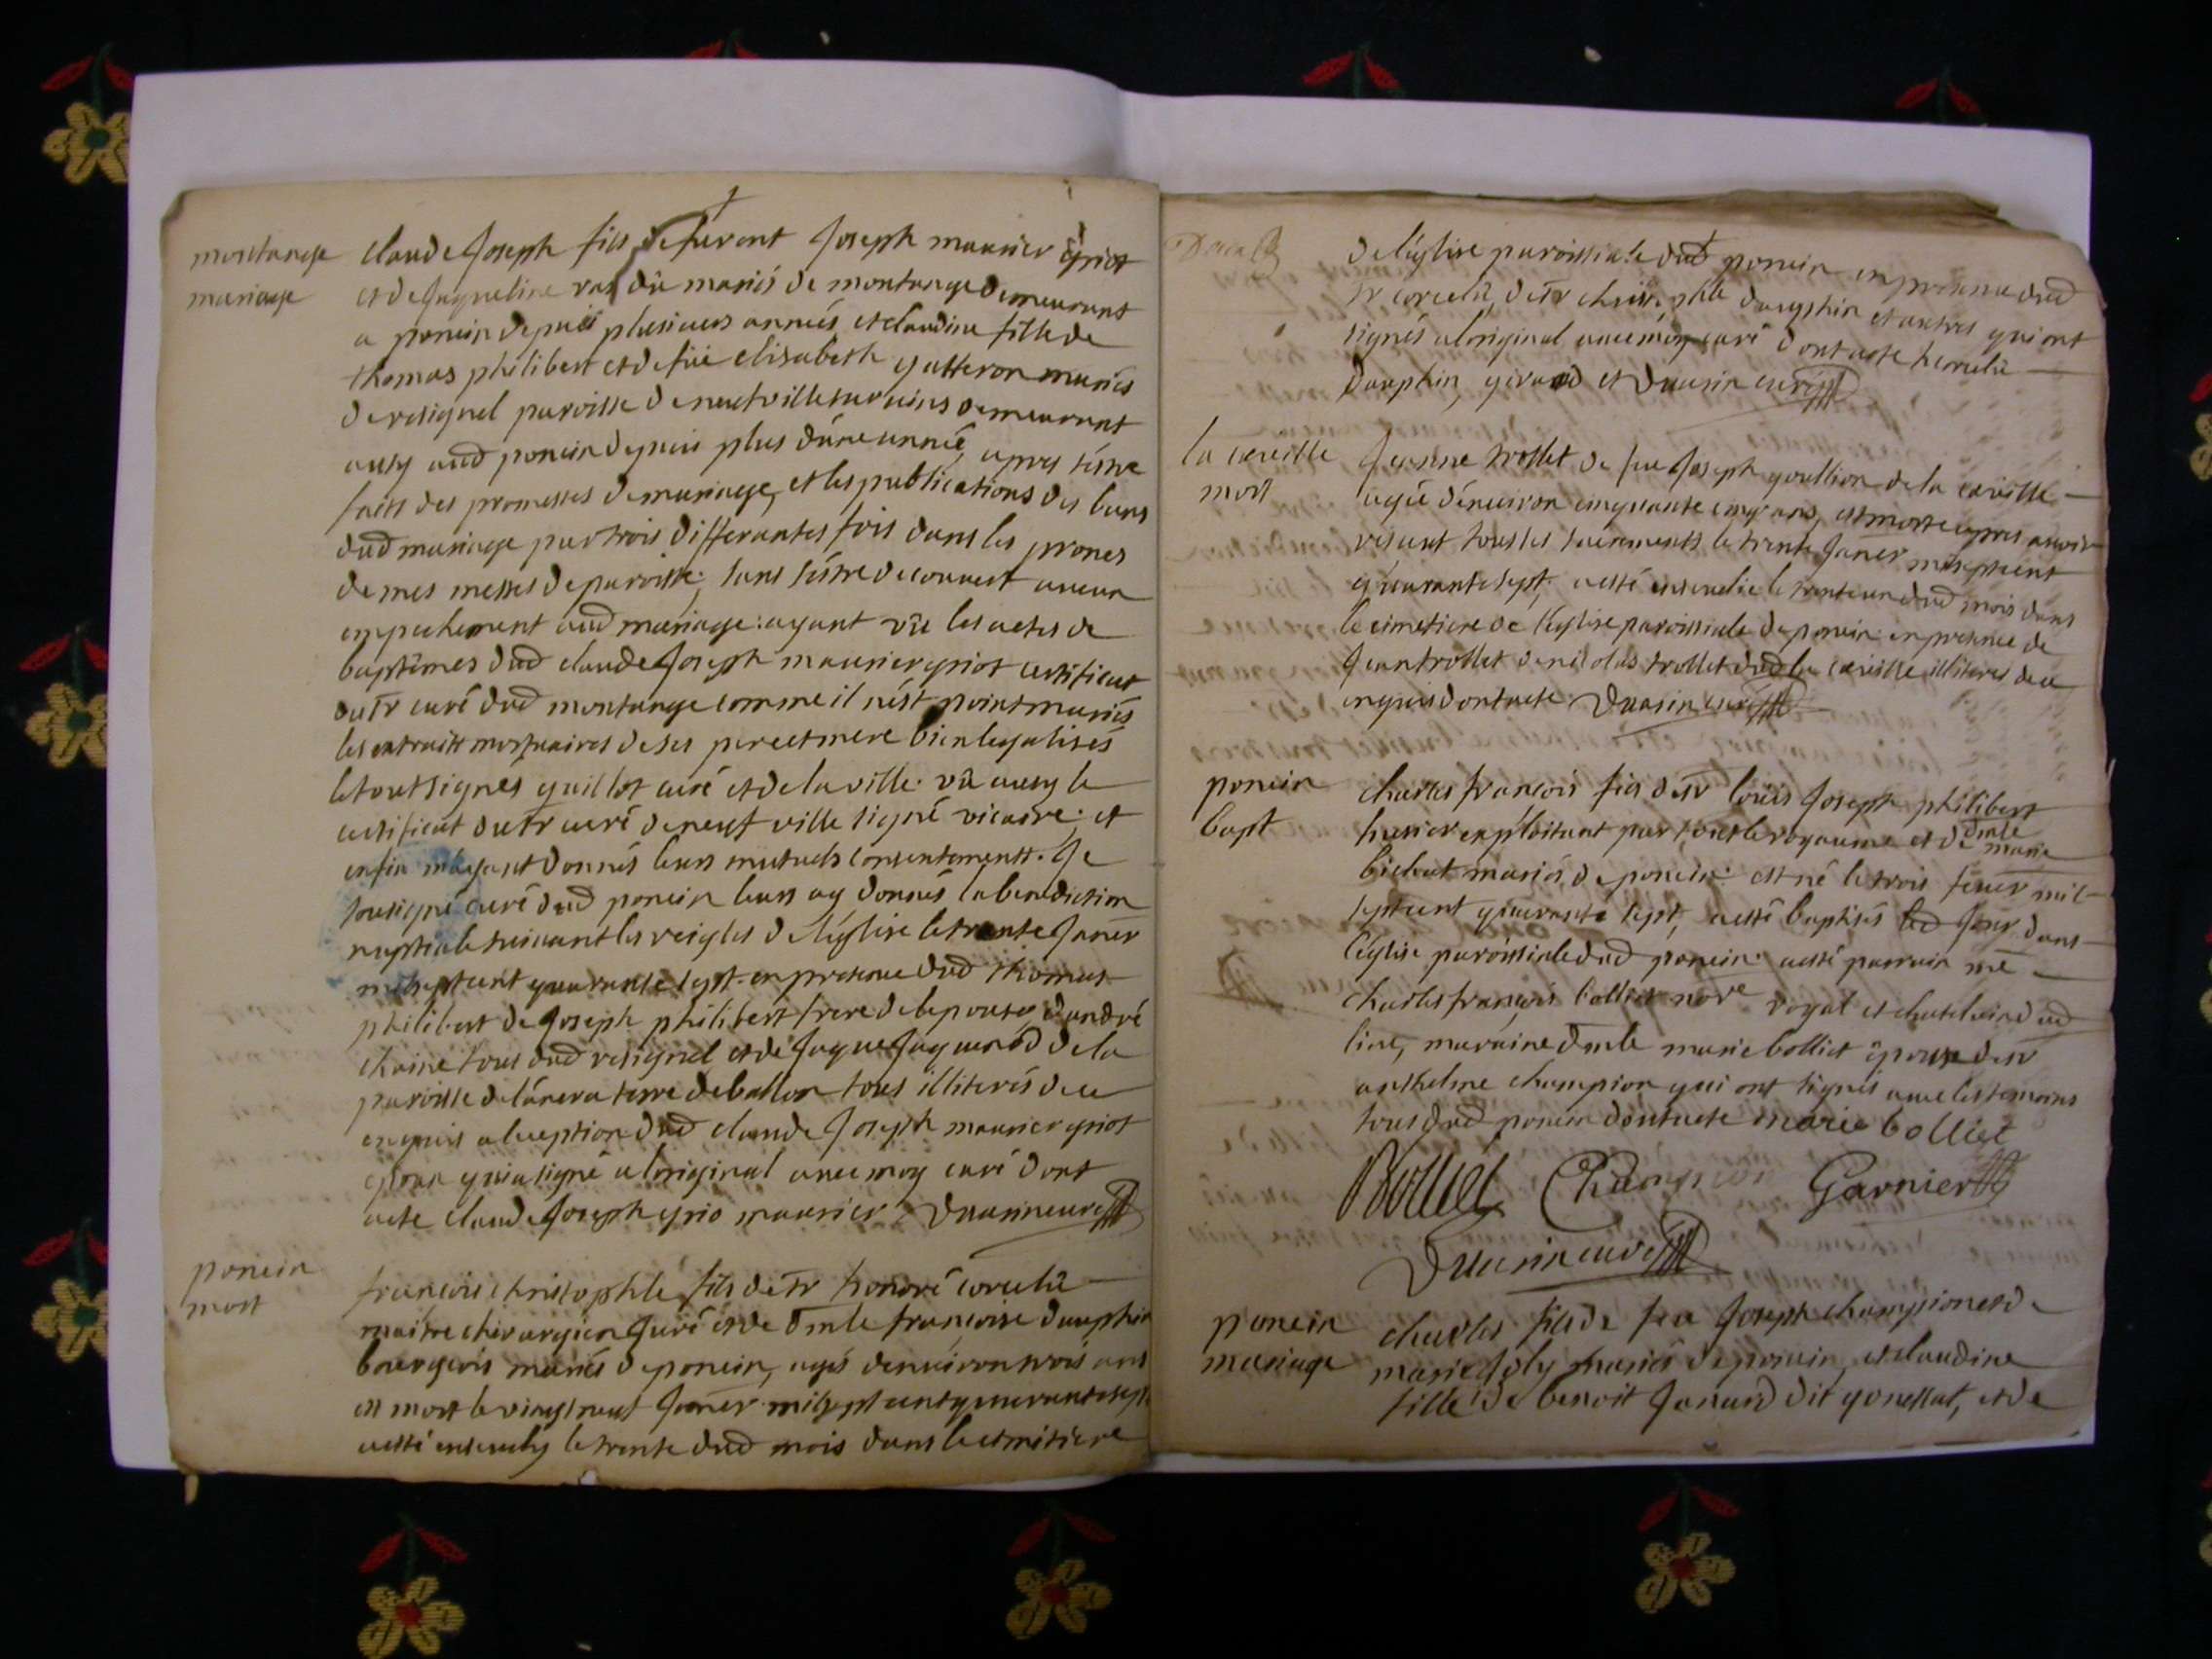 montange
mariage
claude Joseph fils de feu ont Joseph maurier griot
et de Jaqueline mariés de montange demeurant
a poncin depuis plusieurs années, et claudine fille de
thomas philibert et de fuë elisabeth gutteron mariés
de resignel paroisse de neufville sur ains demeurant
ausy aud poncin depuis plus dúne année, apres sêstre
faits des promesses de mariage, et les publications des bans
dud mariage par trois differantes fois dans les prones
de mes messes de paroisse, sans sêstre decouvert aucun
empechement aud mariage: ayant vû les actes de
baptêmes dud claude Joseph maurier griot certificat
du sr curé dud montange comme il nést point mariés
les extraits mortuaires de ses pere et mere bien legalisés
le tout signés guillot curé et de la ville. vû ausy le
certificat du sr curé de neufville signé vicaire; et
enfin máyant donnés leurs mutuels consentements. Je
sousigné curé dud poncin leurs ay donnés la benediction
nuptiale suivant les reigles de léglise le trante Janer
mil sept cent quarante sept. en presence dud thomas
philibert de Joseph philibert frere de lepouse, d'andré
chaine tous dud resignel et de Jaque Jaquenod de la
paroisse de terre de ballon tous illiterés de ce
enquis a lception dud claude Joseph maurier griot
epoux qui a signé a loriginal avec moy curé dont
acte claude Joseph grio maurier Duasin curé
poncin
mort
francois christophle fils de sr honoré corcelû
maitre chirurgien Juré et de dmle françoise dauphin
bourgeois mariés de poncin, agés denuiron trois ans
est mort le vingt neuf Janer mil sept cent quarante sept
a esté enseuely le trente dud mois dans le cimitiere
de léglise paroissiale dud poncin en presence dud
sr corcelû, de sr christophle dauphin et autres qui ont
signés a loriginal avec moy curé dont acte h corcelû
Dauphin, girard et Duasin curé
la cueille
mort
Jeanne trollet de feu Joseph goullion de la cueille
agée dénuiron cinquante cinq ans, est morte apres avoir
resceut tous les sacrements le trente Janer mil sept cent
quarante sept, a esté enseuelie le trente un dud mois dans
le cimetiere de léglise paroissiale de poncin en presence de
Jean trollet de nicolas trollet dud la cueille illiteres de ce
enquis dont acte Duasin curé
poncin
bapt
charles françois fils de sr louis Joseph philibert
hussier exploitant par tout le royaume et de dmle marie
biebat mariés de poncin est né le trois feuer mil
sept cent quarante sept, a esté baptisés led Jour dans
léglise paroissiale dud poncin a esté parrain me
charles françois bolliet nore royal et chatelain dud
line, maraine dmle marie bolliet épouse de sr
anthelme champion qui ont signés avec les temoins
tous dud poncin dont acte marie bolliet
Bolliet Champion Garnier
Duasin curé
poncin
mariage
charles fils de feu Joseph champion et de
marie Joly mariés de poncin, et claudine
fille de benoit Janard dit gonessat, et de